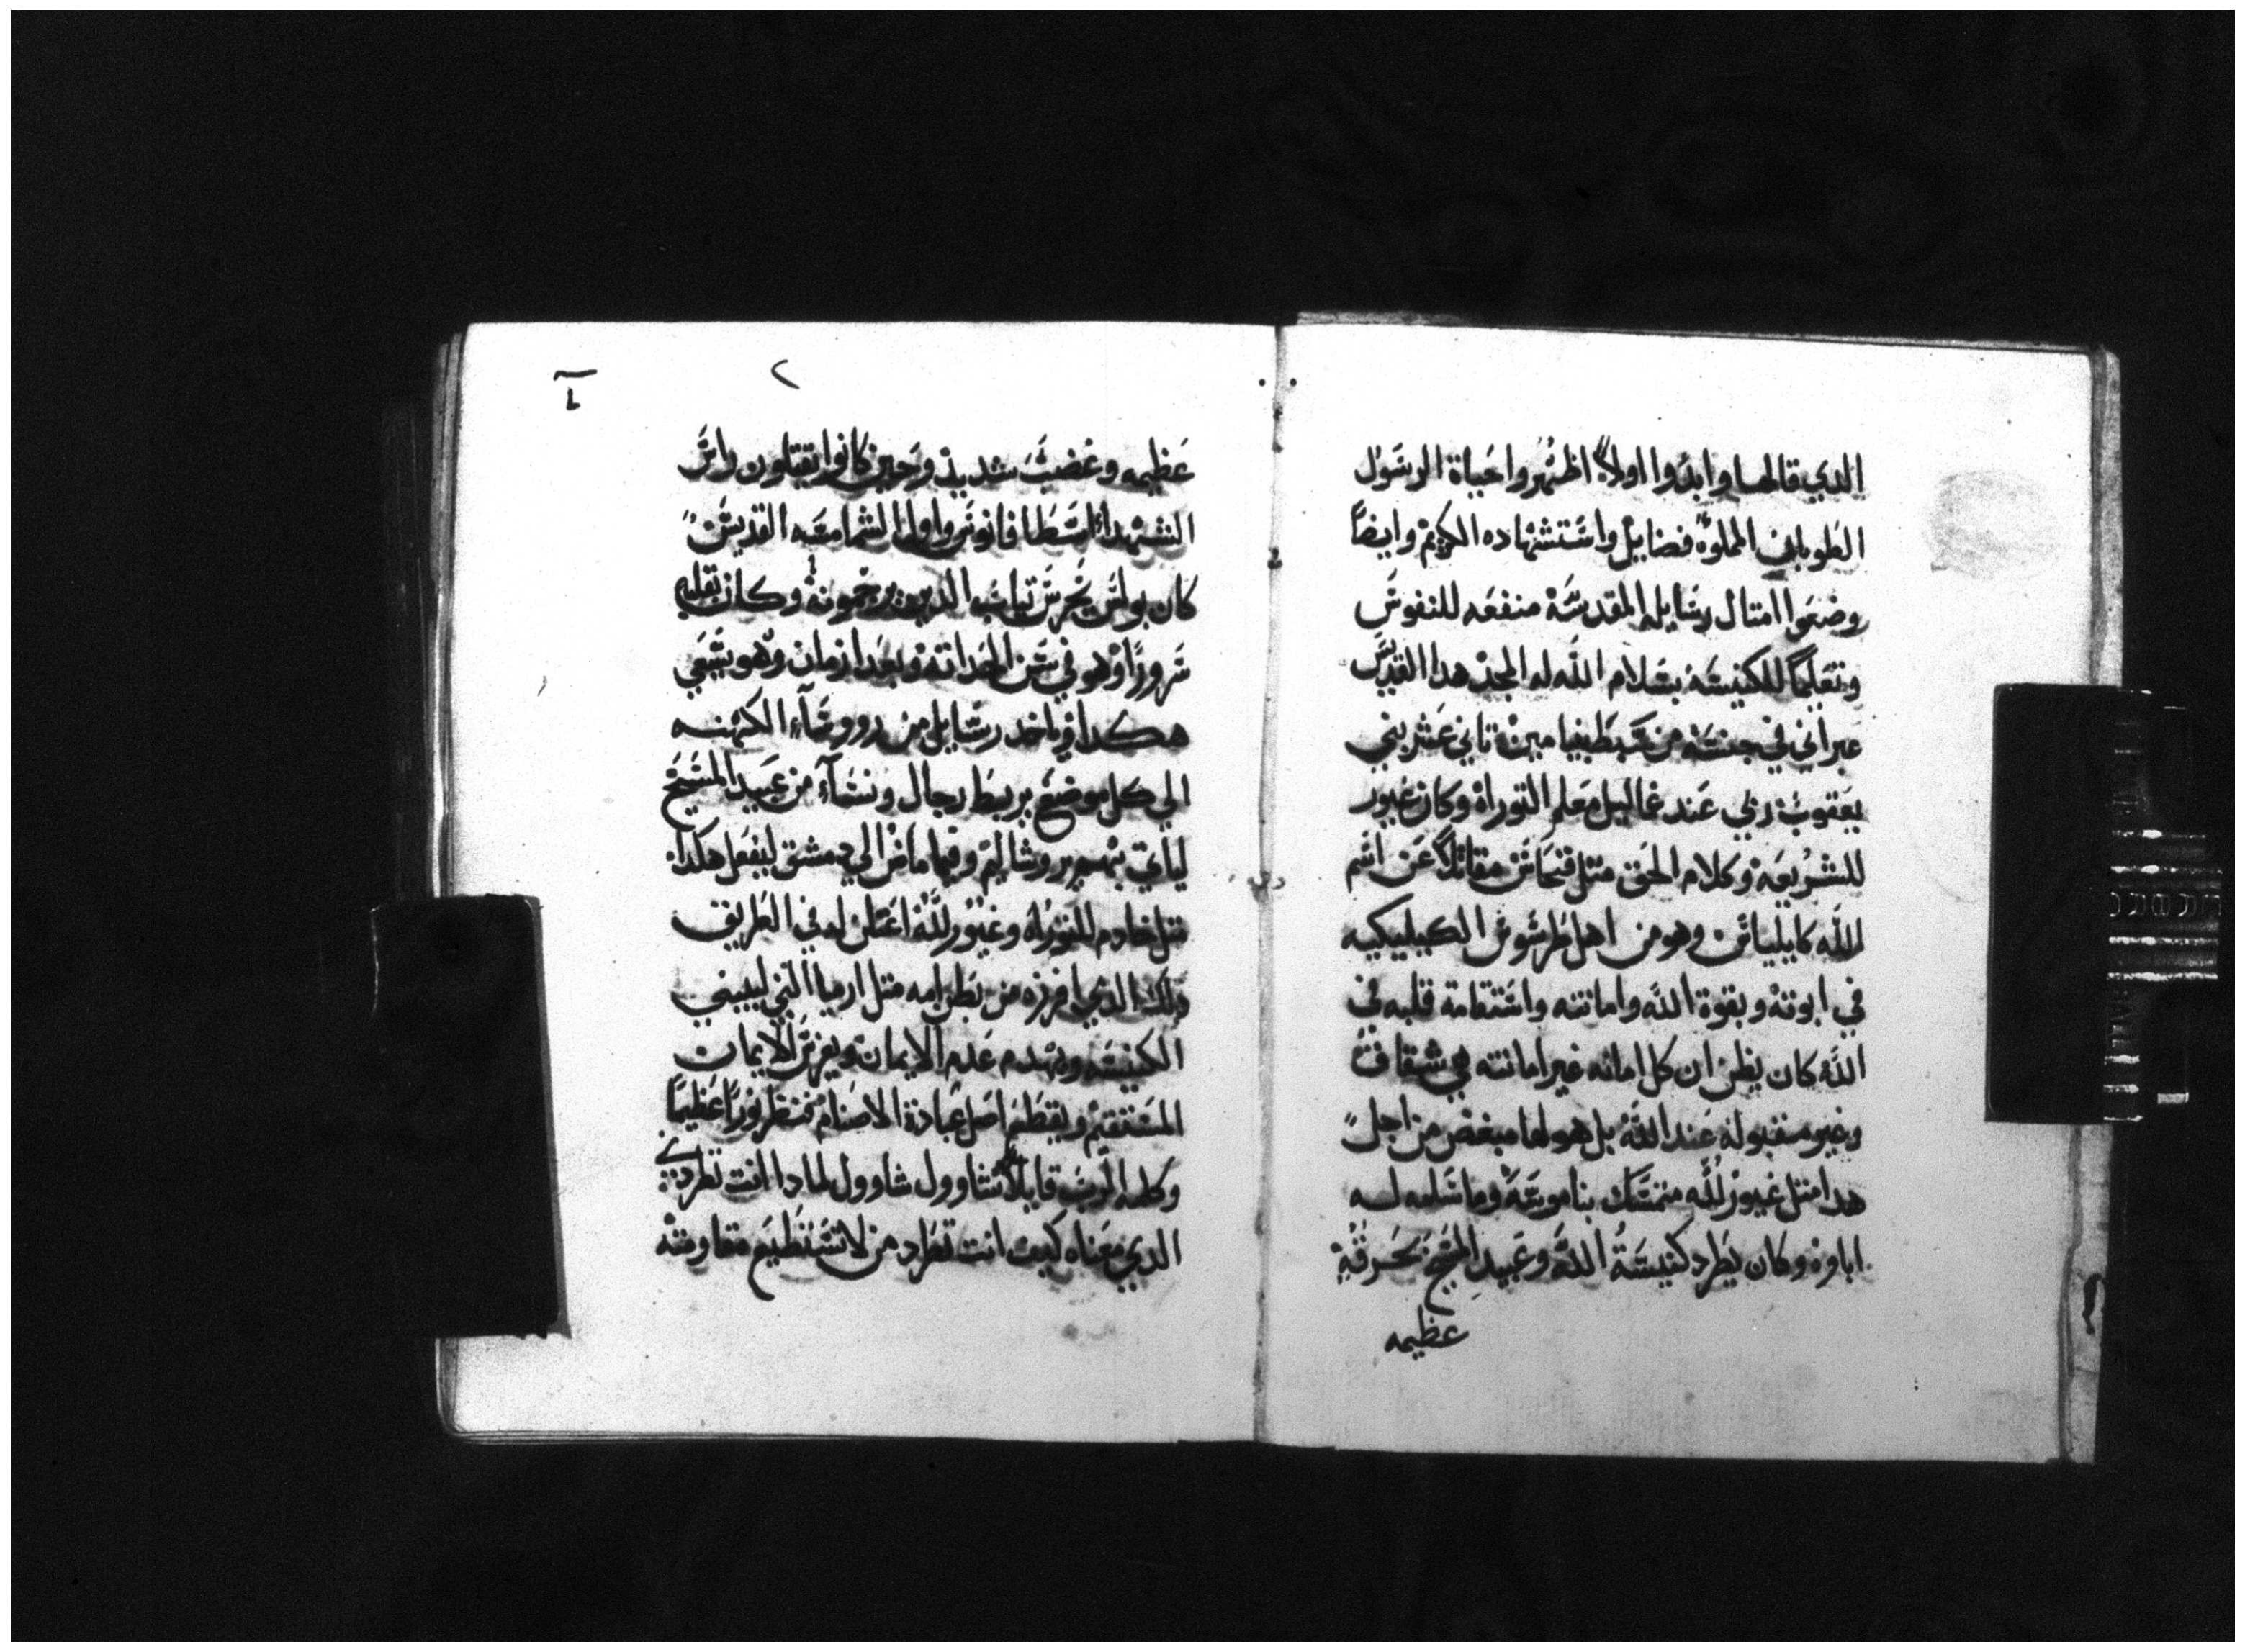 الدي قالها وابدوا اولاً اظهروا حياة الرسول
الطوباني المملوة فضايل واستشهاده الكريم وايضاً
وضعوا امتال رسايله المقدسة منفعه للنفوس
وتعليماً للكنيسة بسلام الله له المجد هدا القديس
عبراني في جنسه من سبط بنيامين تاني عشر بني
يعقوب ربي عند غماليل معلم التوراة وكان غيور
للشريعه وكلام الحق متل فنحاس مقاتلاً عن اسم
الله كايلياس وهو من اهل طرسوس الكيليكيه
في ابوته وبقوة الله وامانته واستقامة قلبه في
الله كان يظن ان كل امانه غير امانته هي شقاق
وغير مقبوله عند الله بل هو لها مبغض من اجل
هدا متل غيور لله متمسك بناموسه وما سلمه له
اباوه وكان يطرد كنيسة الله وعبيد المسيح بحرقة
عظيمه
٢
عظيمه وغضب شديد وحين كانوا يقتلون راس
الشهدا اسطافانوس واول الشمامسه القديس
كان بولس يحرس تياب الدين يرجمونه وكان بقلبه
سروراً وهو في سن الحداته وبعد ازمان وهو يسعي
هكدا وياخد رسايل من رووسآء الكهنه
الي كل موضع يربط رجال ونسآء من عبيد المسيح
لياتي بهم يروشاليم وفيما ماض الي دمشق ليفعل هكدا
متل خادم للتوراة وغيور لله اعتلن له في الطريق
دلك الدي افرزه من بطن امه متل ارميا النبي ليبني
الكنيسه ويهدم عدم الايمان ويغرس الايمان
المستقيم ويقطع اصل عبادة الاصنام فنظر نوراً عظيماً
وكلمه الرب قايلاً شاوول شاوول لمادا انت تطردني
الدي معناه كيف انت تطرد من لا تستطيع مقاومته